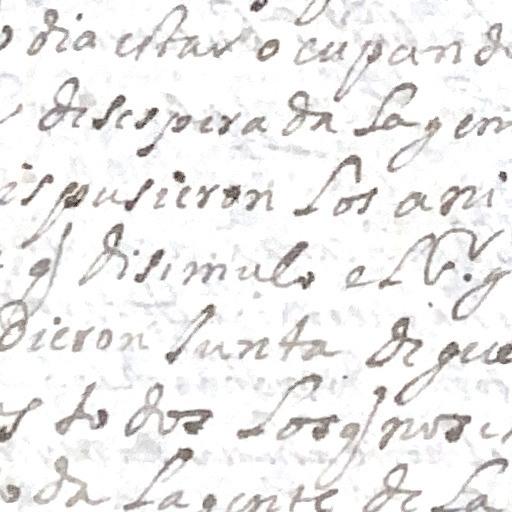 dia estar ocupand
desesperada la gen
ispusieron los ani
q disimulo el
dieron Junta de gue
s todos los q nos
da la gente de la